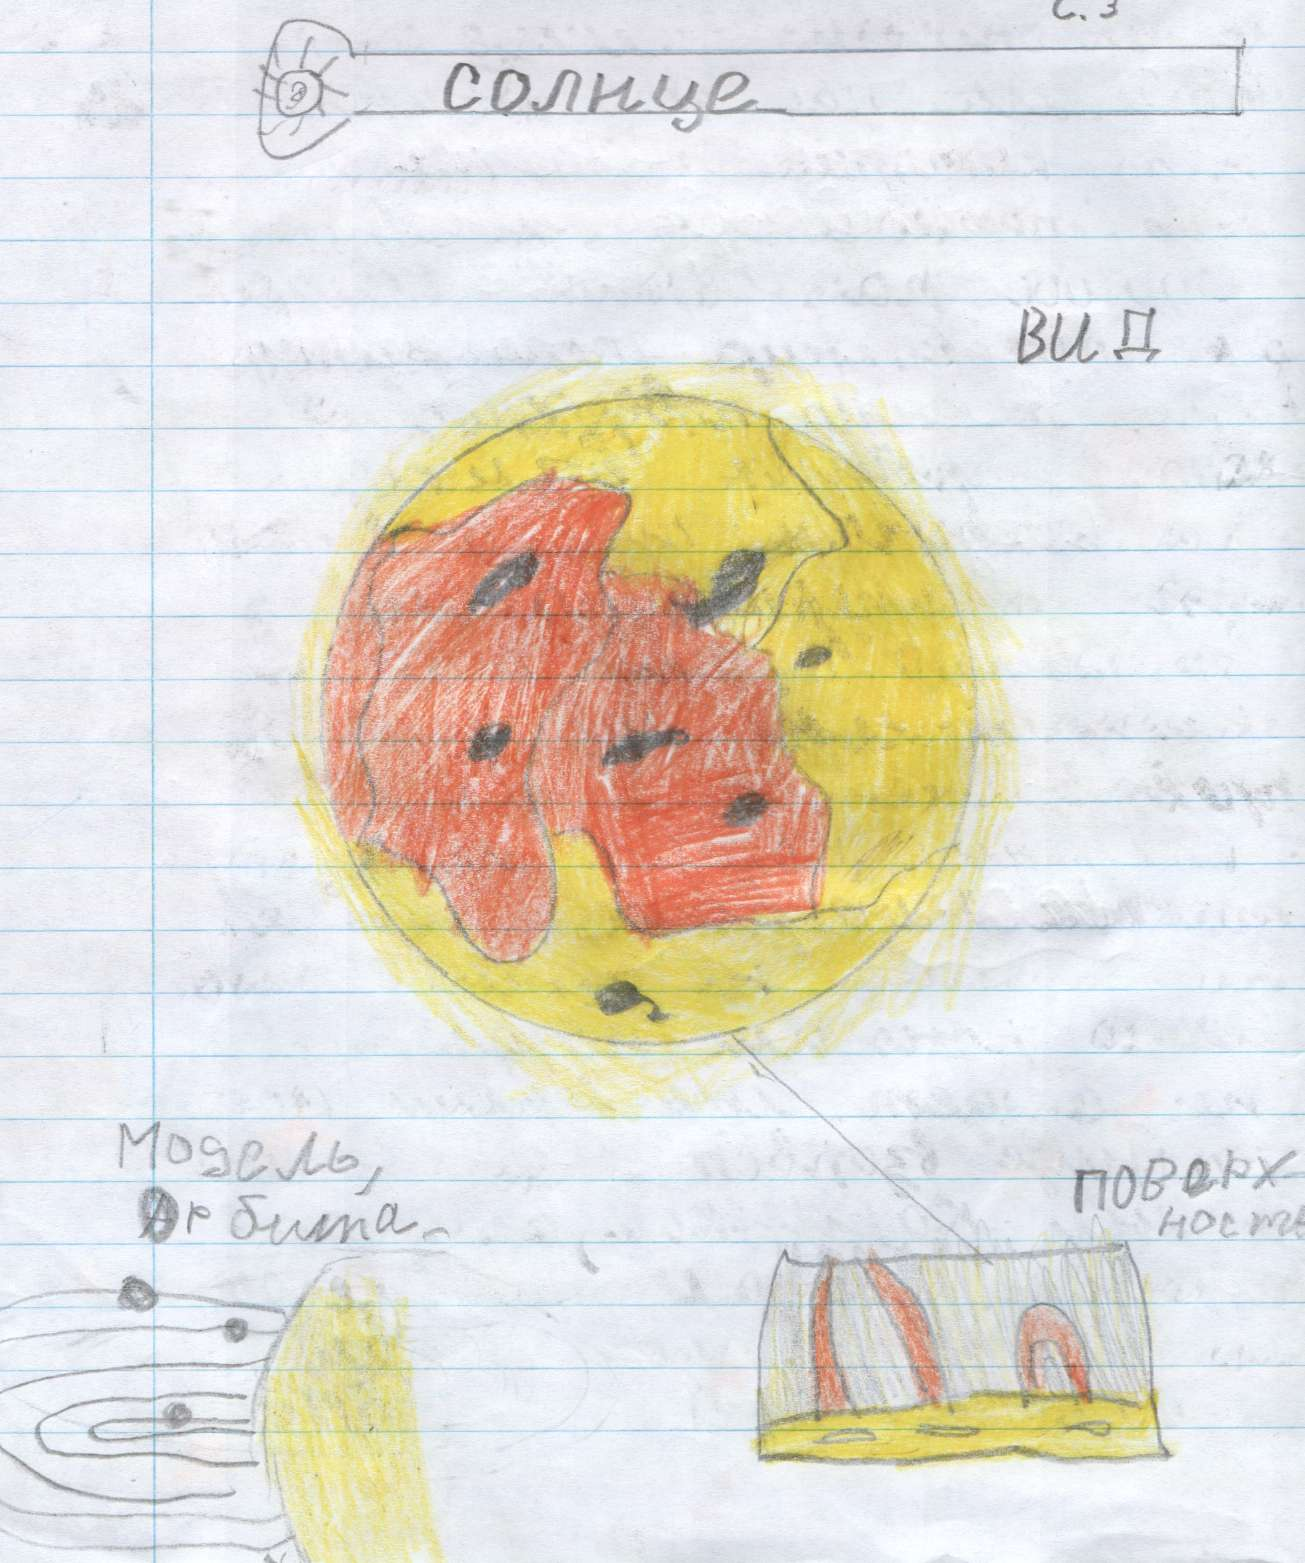 с. 3
СОЛНЦЕ
ВИД
Модель,
Орбита.
ПОВЕРХ
НОСТЬ